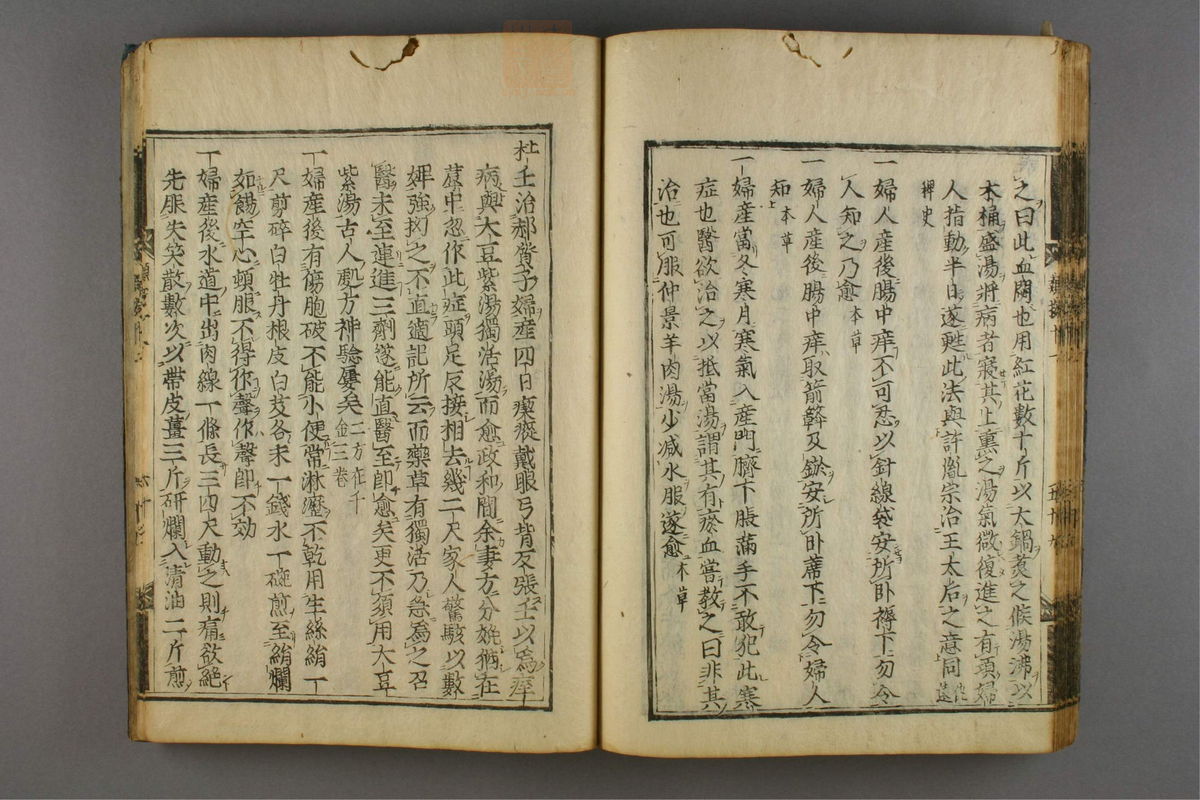 之曰此血悶也用紅花數十斤以大鍋煮之候湯沸以
木桶盛湯將病者寢其上熏之湯氣微復進之有頃婦
人指動半日遂甦此法與許胤宗治王太后之意同
稗史
一婦人産後腸中痒不可忍以針線袋安所卧褥下勿令
人知之乃愈 本草
一婦人産後腸中痒取箭簳及鏃安所卧蓆下勿令婦人
知 本草
一婦産當冬寒月寒氣入産門臍下脹滿手不敢犯此寒
症也醫欲治之以抵當湯謂其有瘀血嘗教之曰非其
治也可服仲景羊肉湯少減水服遂愈 本草
杜壬治郝質子婦産四日瘈瘲戴眼弓背反張壬以爲痙
病與大豆紫湯獨活湯而愈政和間余妻方分娩猶在
蓐中忽作此症頭足反接相去幾二尺家人驚駭以數
婢強拗之不直適記所云而藥草有獨活乃急爲之召
醫未至連進三劑遂能直醫至即愈矣更不須用大豆
紫湯古人處方神驗屢矣 二方在千金三卷
一婦産後有傷胞破不能小便常淋瀝不乾用生絲絹一
尺剪碎白牡丹根皮白芨各末一錢水一碗煎至絹爛
如餳空心頓服不得作聲作聲即不効
一婦産後水道中出肉線一條長三四尺動之則痛欲絶
先服失笑散數次以帶皮薑三斤研爛入清油二斤煎